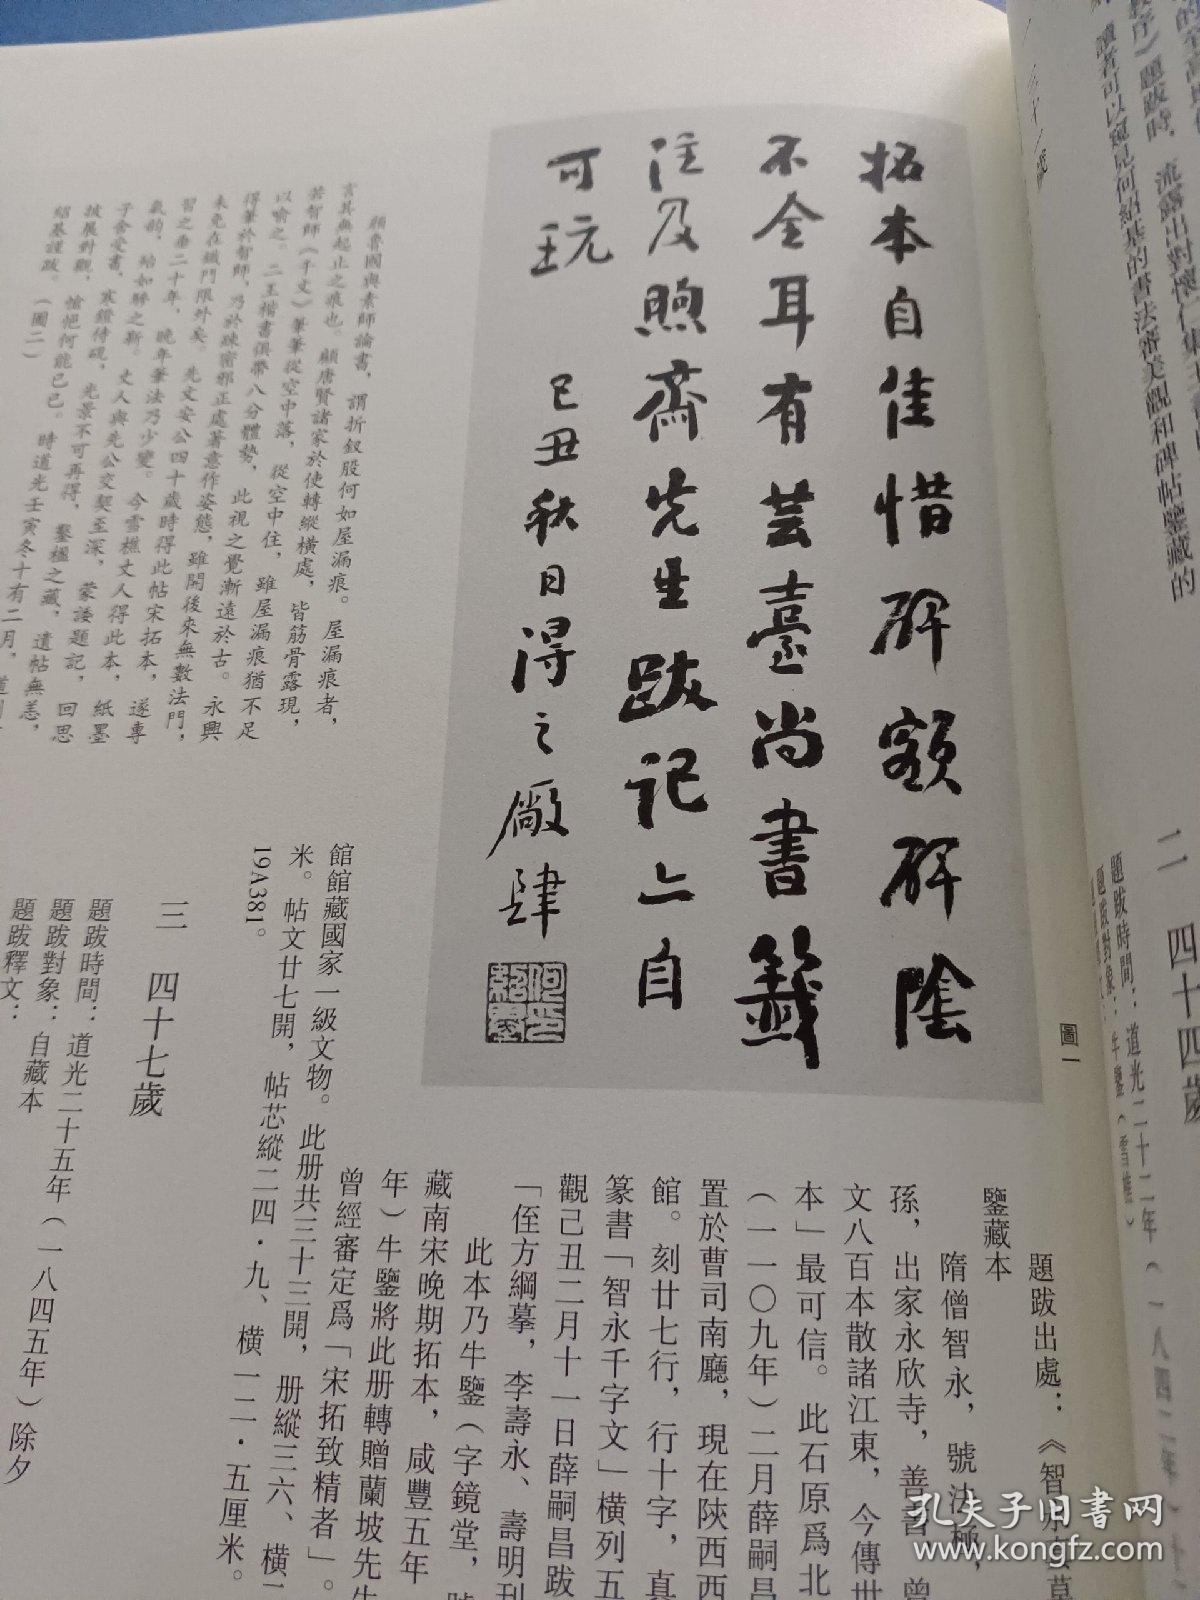 讀者可以窺見何紹基的書法審美觀和碑帖鑒藏的
二 四十四歲
題跋時間：道光二十二年（一八四二年）十二
拓本自佳惜碑額碑陰
不全耳有芸臺尚書籤
注及煦齋先生跋記亦自
可玩 己丑秋日得之廠肆
圖一
顏魯國與素師論書，謂折釵股何如屋漏痕。屋漏痕者，
言其無起止之痕也。顧唐賢諸家於使轉縱橫處，皆筋骨露現，
若智師《千文》筆筆從空中落，從空中住，雖屋漏痕猶不足
以喻之。二王楷書俱帶八分體勢，此視之覺漸遠於古。永興
得筆於智師，乃於疎密邪正處著意作姿態，雖開後來無數法門，
未免在鐵門限外矣。先文安公四十歲時得此帖宋拓本，遂專
習之垂二十年，晚年筆法乃少變。今雪樵丈人得此本，紙墨
氣韵，殆如驂之靳。丈人與先公交契至深，蒙諉題記，回思
子舍受書，寒鐙侍硯，光景不可再得，鑿楹之藏，遺帖無恙，
披展對觀，愴悒何能已已。時道光壬寅冬十有二月，
紹基謹跋。（圖二）
題跋出處：《智永
鑒藏本
隋僧智永，號法極，
孫，出家永欣寺，善書，曾
文八百本散諸江東，今傳世
本」最可信。此石原爲北
（一一〇九年）二月薛嗣昌
置於曹司南廳，現在陝西西
館。刻廿七行，行十字，真
篆書「智永千字文」橫列五
觀己丑二月十一日薛嗣昌跋
「侄方綱摹，李壽永、壽明刊
此本乃牛鑒（字鏡堂，
藏南宋晚期拓本，咸豐五年
年）牛鑒將此册轉贈蘭坡先生
曾經審定爲「宋拓致精者」。
館館藏國家一級文物。此册共三十三開，册縱三六、橫一
米。帖文廿七開，帖芯縱二四·九、橫一二·五厘米。
19A381。
三 四十七歲
題跋時間：道光二十五年（一八四五年）除夕
題跋對象：自藏本
題跋釋文：
孔夫子旧書网
www.kongfz.com